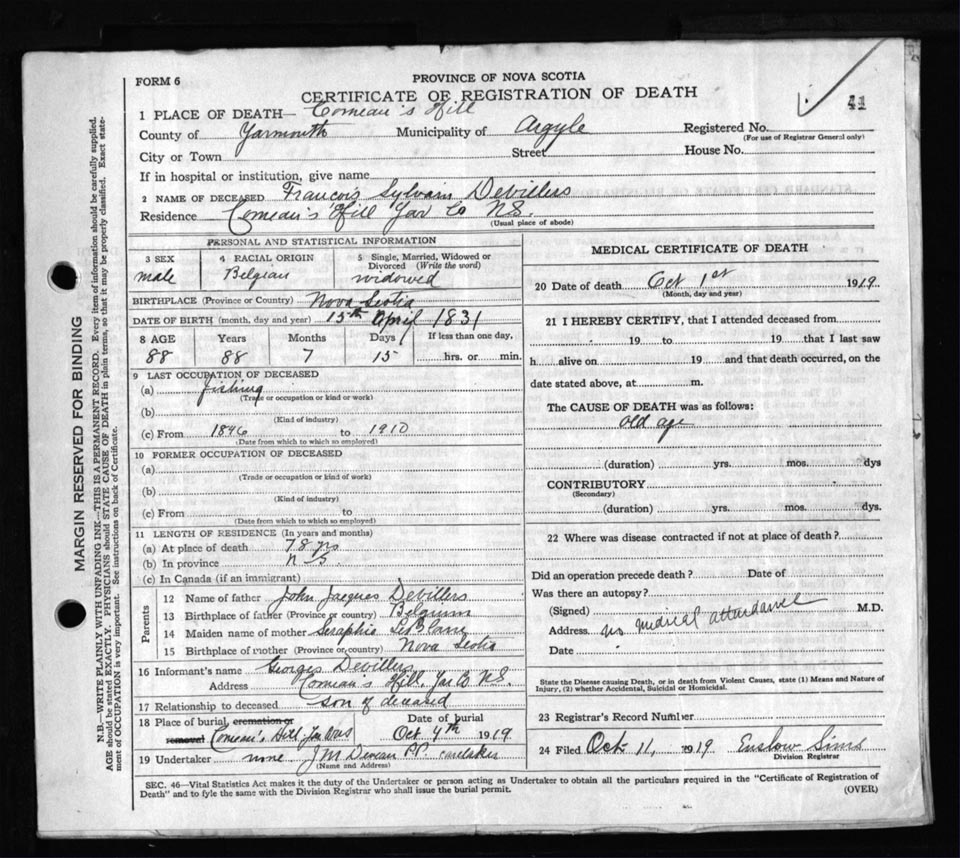 PROVINCE OF NOVA SCOTIA
FORM 6
CERTIFICATE OF REGISTRATION OF DEATH
41
1 PLACE OF DEATH— Comeau's Hill
County of Yarmouth Municipality of Argyle Registered No.
(For use of Registrar General only)
City or Town Street House No.
If in hospital or institution, give name
2 NAME OF DECEASED Francois Sylvain Devillers
Residence Comeau's Hill Yar Co N.S.
(Usual place of abode)
PERSONAL AND STATISTICAL INFORMATION
3 SEX 4 RACIAL ORIGIN 5 Single, Married, Widowed or Divorced (Write the word)
male Belgian widowed
BIRTHPLACE (Province or Country) Nova Scotia
DATE OF BIRTH (month, day and year) 15th April 1831
8 AGE Years Months Days If less than one day,
88 88 7 15 hrs. or min.
9 LAST OCCUPATION OF DECEASED
(a) fishing
(Trade or occupation or kind or work)
(b)
(Kind of industry)
(c) From 1846 to 1910
(Date from which to which so employed)
10 FORMER OCCUPATION OF DECEASED
(a)
(Trade or occupation or kind of work)
(b)
(Kind of industry)
(c) From to
(Date from which to which so employed)
11 LENGTH OF RESIDENCE (In years and months)
(a) At place of death 78 yrs
(b) In province N S.
(c) In Canada (if an immigrant)
Parents
12 Name of father John Jacques Devillers
13 Birthplace of father (Province or country) Belgium
14 Maiden name of mother Seraphie LeBlanc
15 Birthplace of mother (Province or country) Nova Scotia
16 Informant's name Georges Devillers
Address Comeau's Hill, Yar Co N.S.
17 Relationship to deceased son of deceased
18 Place of burial cremation or Date of burial
removal Comeau's Hill Oct 4th 1919
19 Undertaker none J M P.P. caretaker
(Name and Address)
MEDICAL CERTIFICATE OF DEATH
20 Date of death Oct 1st 1919.
(Month, day and year)
21 I HEREBY CERTIFY, that I attended deceased from
19 to 19 that I last saw
h alive on 19 and that death occurred, on the
date stated above, at m.
The CAUSE OF DEATH was as follows:
old age
(duration) yrs. mos. dys
CONTRIBUTORY
(Secondary)
(duration) yrs. mos. dys.
22 Where was disease contracted if not at place of death?
Did an operation precede death? Date of
Was there an autopsy?
(Signed) M.D.
Address no medical attendance
Date
State the Disease causing Death, or in death from Violent Causes, state (1) Means and Nature of
Injury, (2) whether Accidental, Suicidal or Homicidal.
23 Registrar's Record Number
24 Filed Oct 11, 1919 Enslow Sims
Division Registrar
SEC. 46—Vital Statistics Act makes it the duty of the Undertaker or person acting as Undertaker to obtain all the particulars required in the "Certificate of Registration of
Death" and to fyle the same with the Division Registrar who shall issue the burial permit. (OVER)
MARGIN RESERVED FOR BINDING
N.B.—WRITE PLAINLY WITH UNFADING INK—THIS IS A PERMANENT RECORD. Every item of information should be carefully supplied.
AGE should be stated EXACTLY. PHYSICIANS should STATE CAUSE OF DEATH in plain terms, so that it may be properly classified. Exact state-
ment of OCCUPATION is very important. See instructions on back of Certificate.